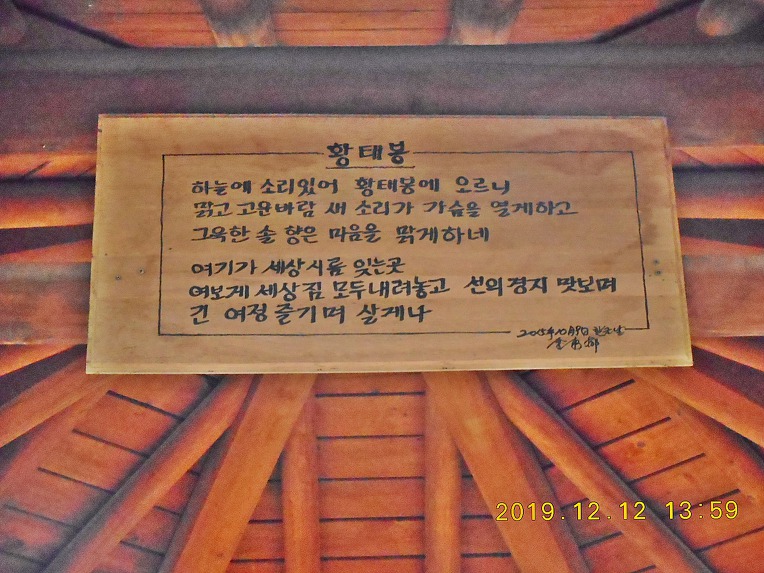 황태봉
하늘에 소리있어 황태봉에 오르니
맑고 고운바람 새 소리가 가슴을 열게하고
그윽한 솔 향은 마음을 맑게하네
여기가 세상시름 잊는곳
여보게 세상짐 모두내려놓고 선의경지 맛보며
긴 여정 즐기며 살게나
2005年10月9日 한글날
2019.12.12 13:59